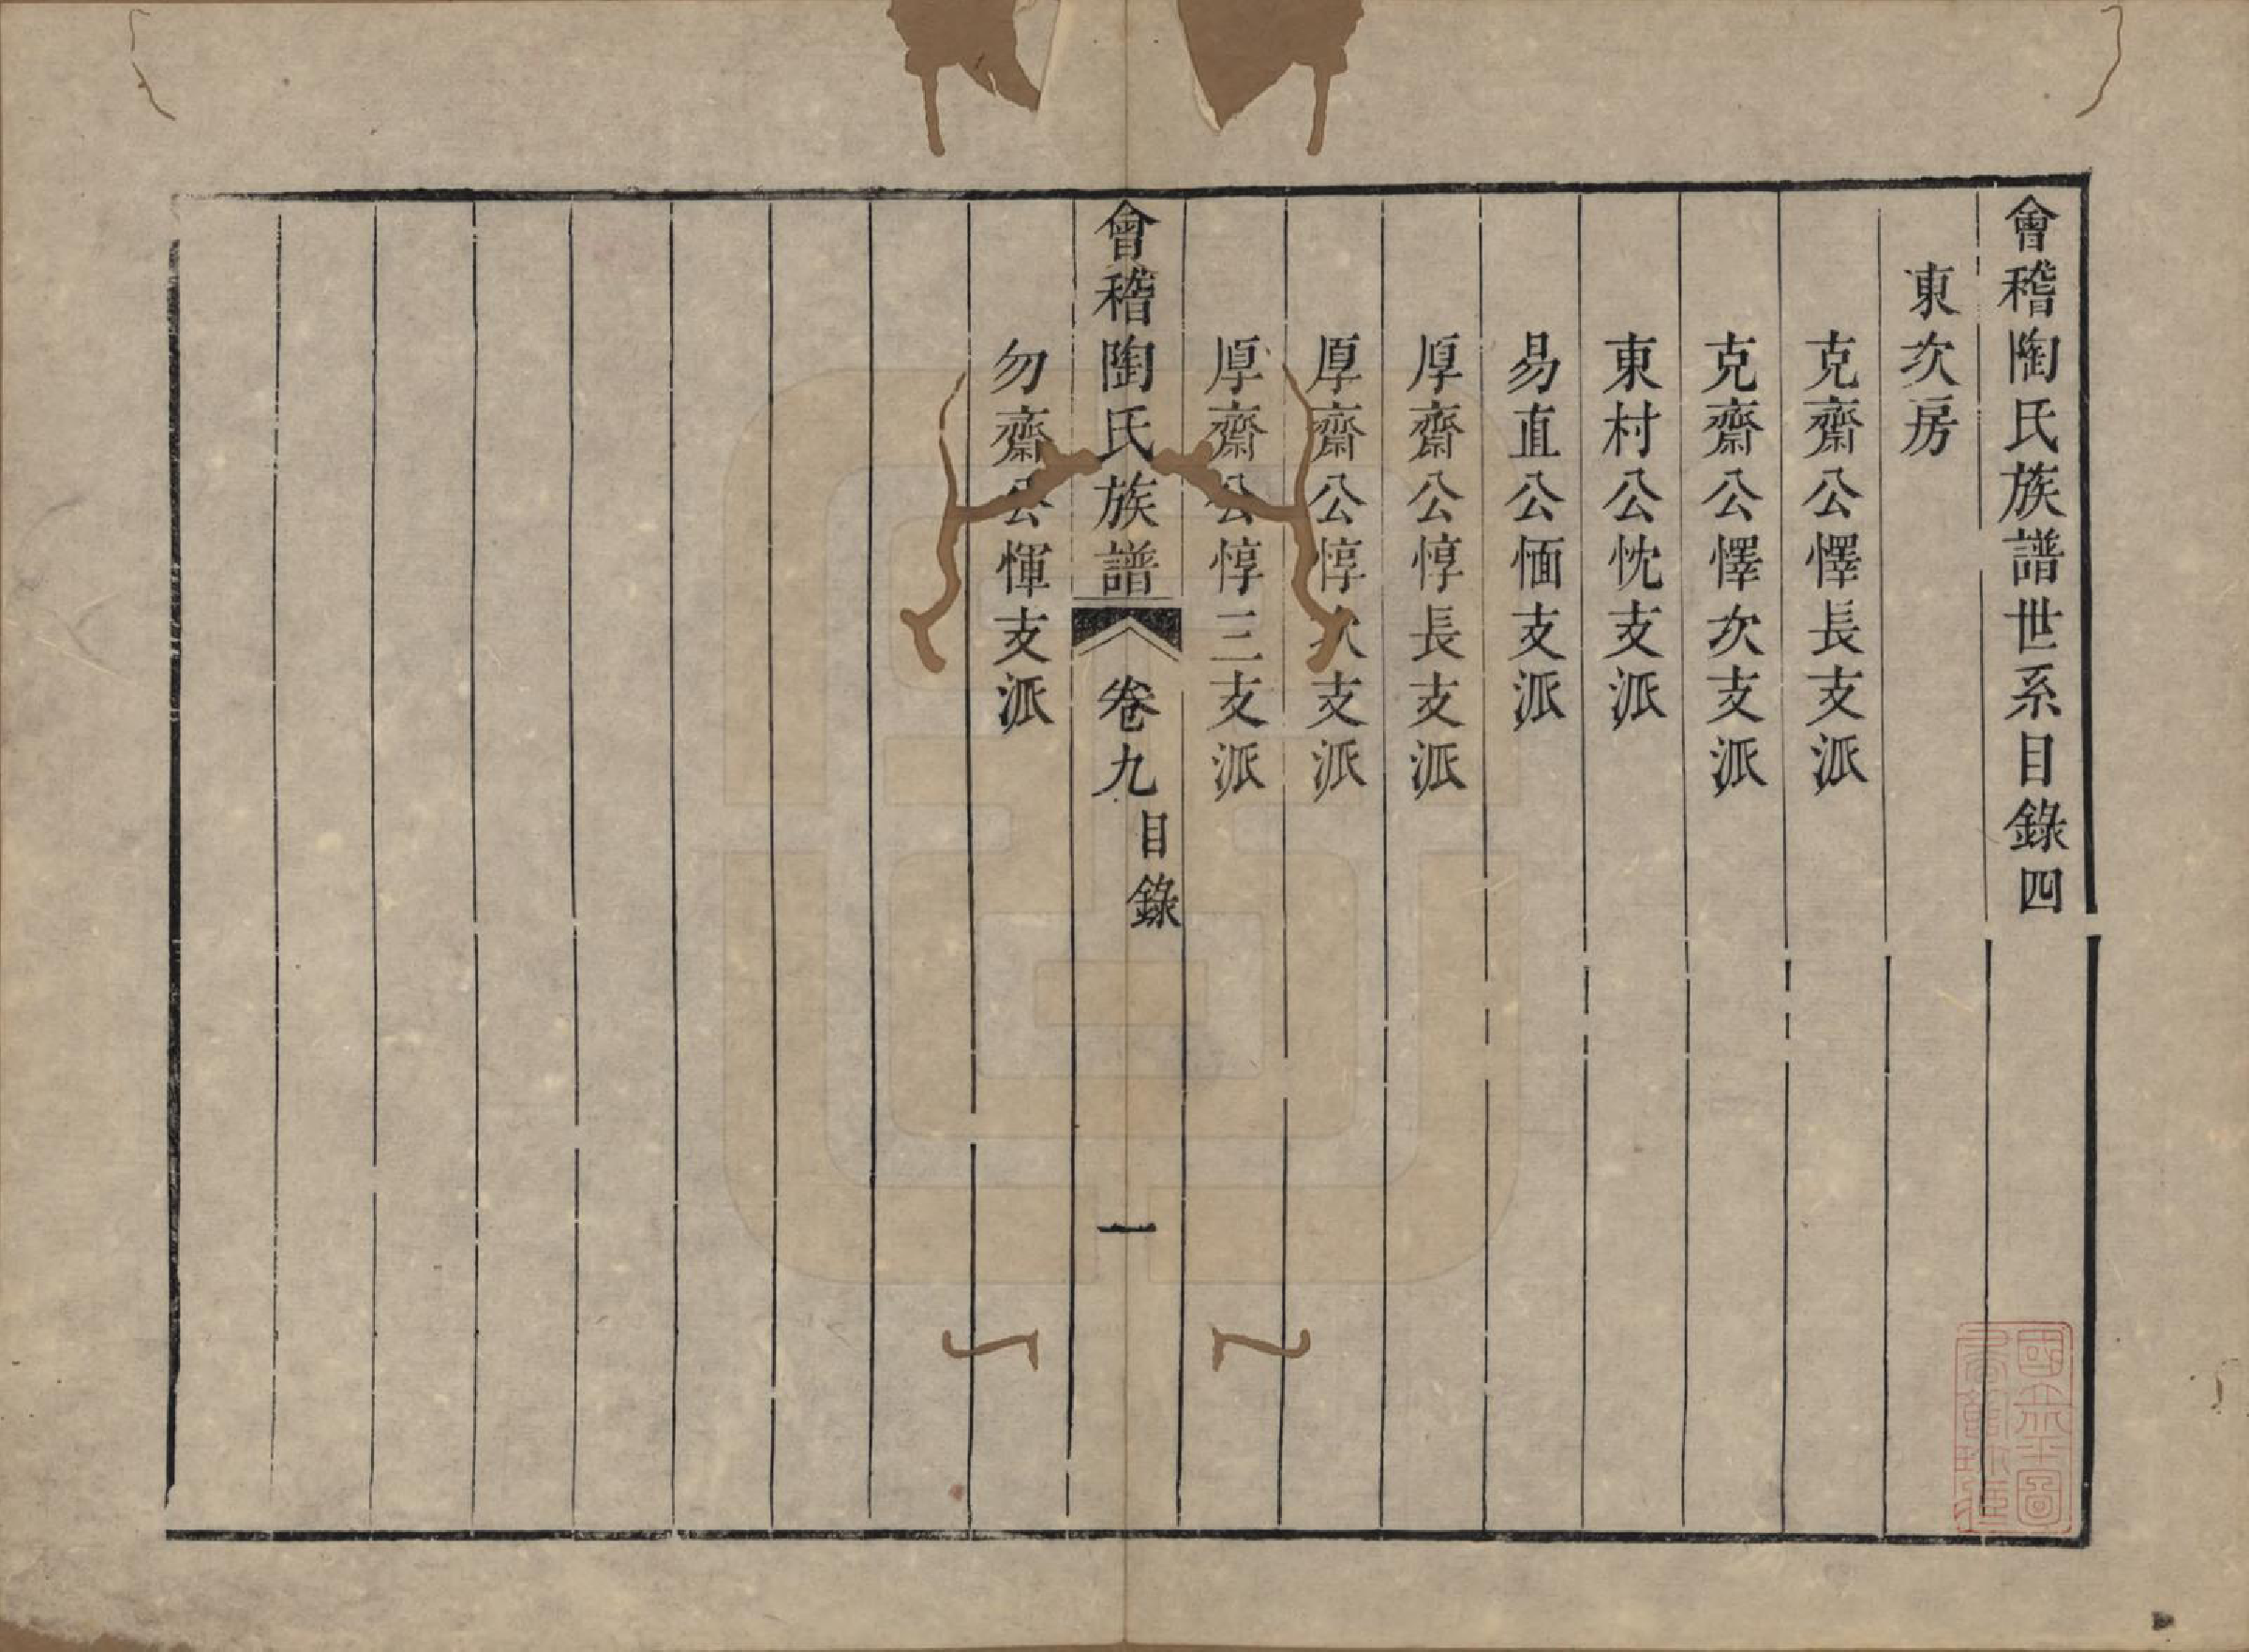 會稽陶氏族譜世系目錄四
東次房
克齋公懌長支派
克齋公懌次支派
東村公忱支派
易直公愐支派
厚齋公惇長支派
厚齋公惇次支派
厚齋公惇三支派
會稽陶氏族譜 卷九 目錄 一
勿齋公惲支派